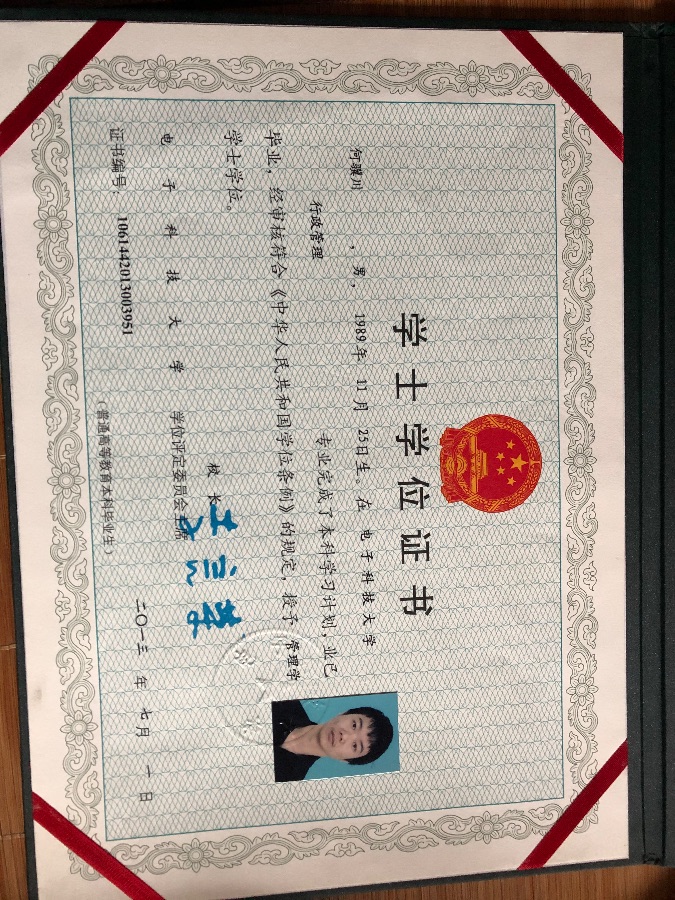 学士学位证书
何骤川，男，1989年 11月 25日生。在 电子科技大学
行政管理 专业完成了本科学习计划，业已
毕业，经审核符合《中华人民共和国学位条例》的规定，授予 管理学
学士学位。
校 长
电子科技大学 学位评定委员会主席
证书编号：1061442013003951 二〇一三 年 七月 一 日
（普通高等教育本科毕业生）